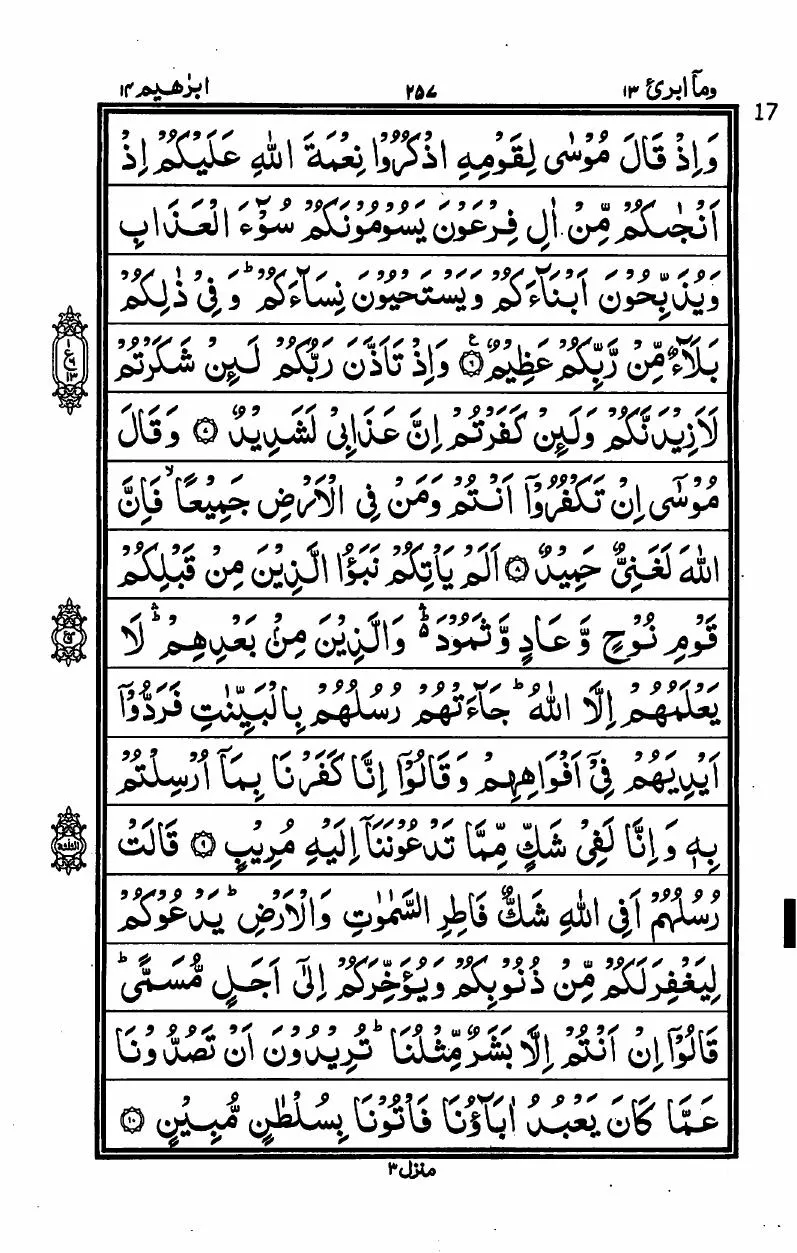 ومآ ابرئ ١٣ ٢٥٧ ابرٰهيم ١٤
17
وَاِذْ قَالَ مُوْسٰى لِقَوْمِهِ اذْكُرُوْا نِعْمَةَ اللّٰهِ عَلَيْكُمْ اِذْ
اَنْجٰىكُمْ مِّنْ اٰلِ فِرْعَوْنَ يَسُوْمُوْنَكُمْ سُوْٓءَ الْعَذَابِ
وَيُذَبِّحُوْنَ اَبْنَآءَكُمْ وَيَسْتَحْيُوْنَ نِسَآءَكُمْ ؕ وَفِيْ ذٰلِكُمْ
بَلَآءٌ مِّنْ رَّبِّكُمْ عَظِيْمٌ ۝٦ وَاِذْ تَاَذَّنَ رَبُّكُمْ لَىِٕنْ شَكَرْتُمْ
لَاَزِيْدَنَّكُمْ وَلَىِٕنْ كَفَرْتُمْ اِنَّ عَذَابِيْ لَشَدِيْدٌ ۝٧ وَقَالَ
مُوْسٰٓى اِنْ تَكْفُرُوْٓا اَنْتُمْ وَمَنْ فِي الْاَرْضِ جَمِيْعًا ۙ فَاِنَّ
اللّٰهَ لَغَنِيٌّ حَمِيْدٌ ۝٨ اَلَمْ يَاْتِكُمْ نَبَؤُا الَّذِيْنَ مِنْ قَبْلِكُمْ
قَوْمِ نُوْحٍ وَّعَادٍ وَّثَمُوْدَ ۛؕ وَالَّذِيْنَ مِنْۢ بَعْدِهِمْ ۛؕ لَا
يَعْلَمُهُمْ اِلَّا اللّٰهُ ؕ جَآءَتْهُمْ رُسُلُهُمْ بِالْبَيِّنٰتِ فَرَدُّوْٓا
اَيْدِيَهُمْ فِيْٓ اَفْوَاهِهِمْ وَقَالُوْٓا اِنَّا كَفَرْنَا بِمَآ اُرْسِلْتُمْ
بِهٖ وَاِنَّا لَفِيْ شَكٍّ مِّمَّا تَدْعُوْنَنَآ اِلَيْهِ مُرِيْبٍ ۝٩ قَالَتْ
رُسُلُهُمْ اَفِي اللّٰهِ شَكٌّ فَاطِرِ السَّمٰوٰتِ وَالْاَرْضِ ؕ يَدْعُوْكُمْ
لِيَغْفِرَ لَكُمْ مِّنْ ذُنُوْبِكُمْ وَيُؤَخِّرَكُمْ اِلٰٓى اَجَلٍ مُّسَمًّى ؕ
قَالُوْٓا اِنْ اَنْتُمْ اِلَّا بَشَرٌ مِّثْلُنَا ؕ تُرِيْدُوْنَ اَنْ تَصُدُّوْنَا
عَمَّا كَانَ يَعْبُدُ اٰبَآؤُنَا فَاْتُوْنَا بِسُلْطٰنٍ مُّبِيْنٍ ۝١٠
منزل ٣